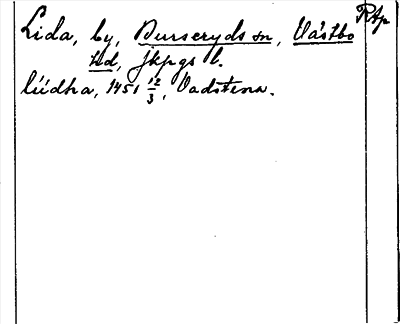 Lida, by, Burseryds sn, Västbo
hd, Jkpgs l.
lúdha, 1451 12/3, Vadstena.
RAp